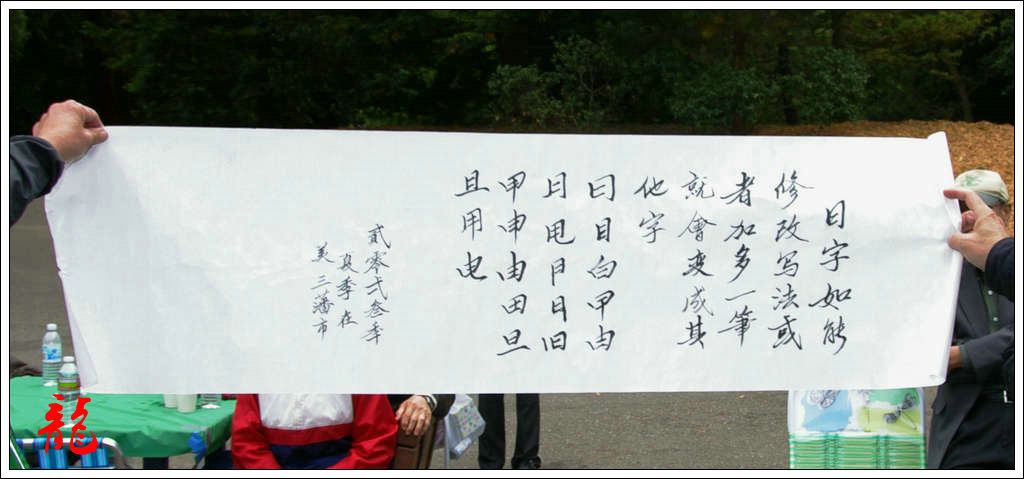 日字如能
修改写法或
者加多一筆
就會变成其
他字
曰目白甲由
日甩尸日旧
甲申由田旦
且用电
貳零弍叁年
夏季在
美三藩市
龍